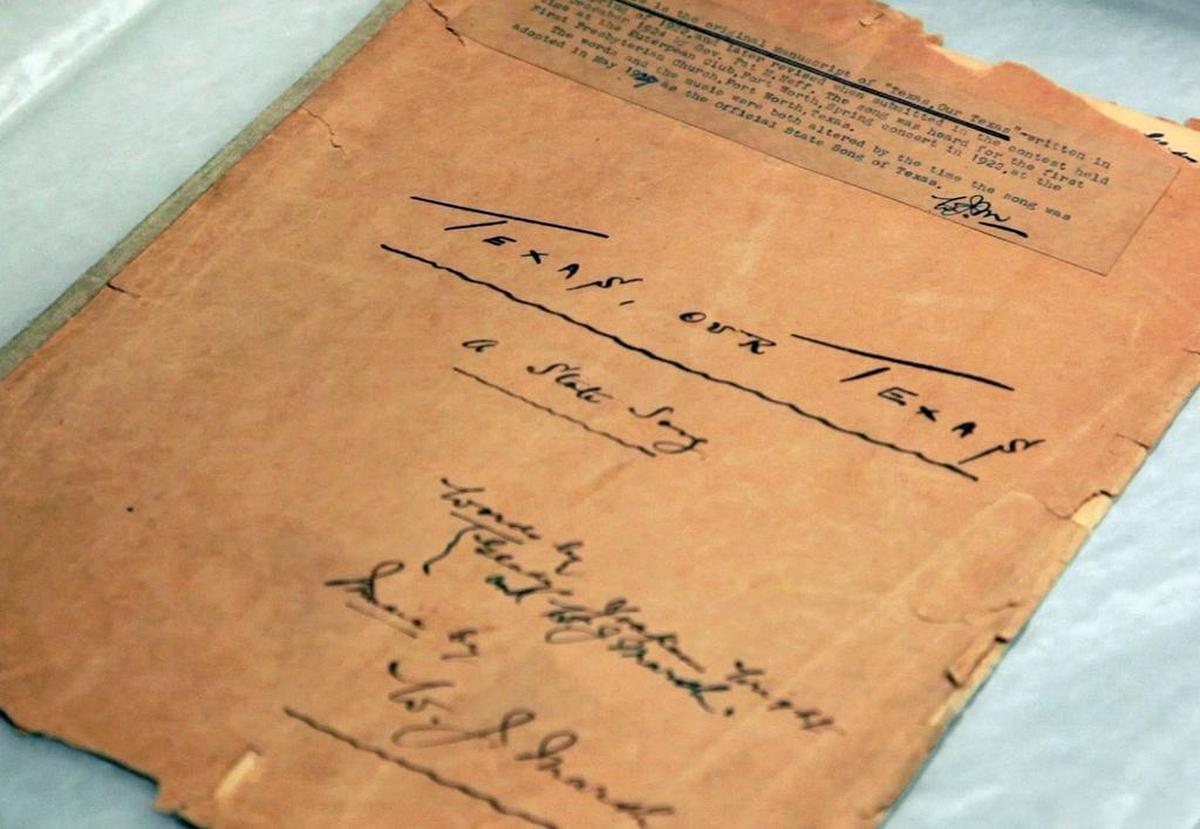 is the original manuscript of "Texas, Our Texas"-written in
of 1922, and later revised when submitted in the contest held
1924 by Gov. Pat M. Neff. The song was heard for the first
time at the Euterpean Club, Fort Worth, Spring concert in 1922, at the
First Presbyterian Church, Fort Worth, Texas.
The words and the music were both altered by the time the song was
adopted in May 1929 as the official State Song of Texas.
WJM
TEXAS, OUR TEXAS
a State Song
Words by
Gladys Yoakum Wright
and W J Marsh.
Music by
W. J. Marsh